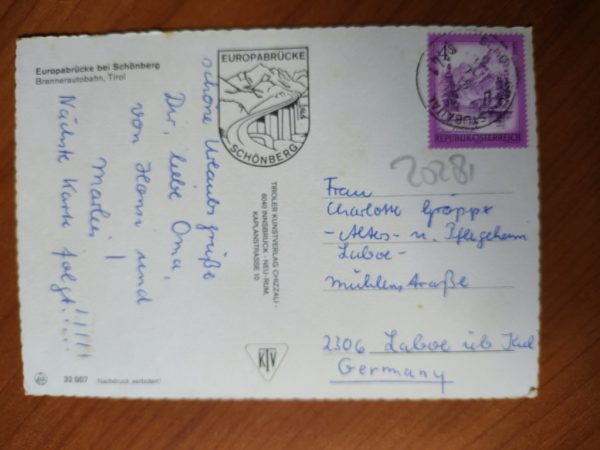 Europabrücke bei Schönberg
Brennerautobahn, Tirol
EUROPABRÜCKE
SCHÖNBERG
REPUBLIK ÖSTERREICH
schöne Urlaubsgrüße
Dir, liebe Oma,
von Hansi und
Marlis!
Nächste Karte folgt!!!!!
TIROLER KUNSTVERLAG CHIZZALI -
6040 INNSBRUCK - NEU-RUM,
KAPLANSTRASSE 10
20281
Frau
Charlotte
-Alters- u. Pflegeheim
Laboe-
Mühlenstraße
2306 Laboe üb Kiel
Germany
KTV
32 007 Nachdruck verboten!